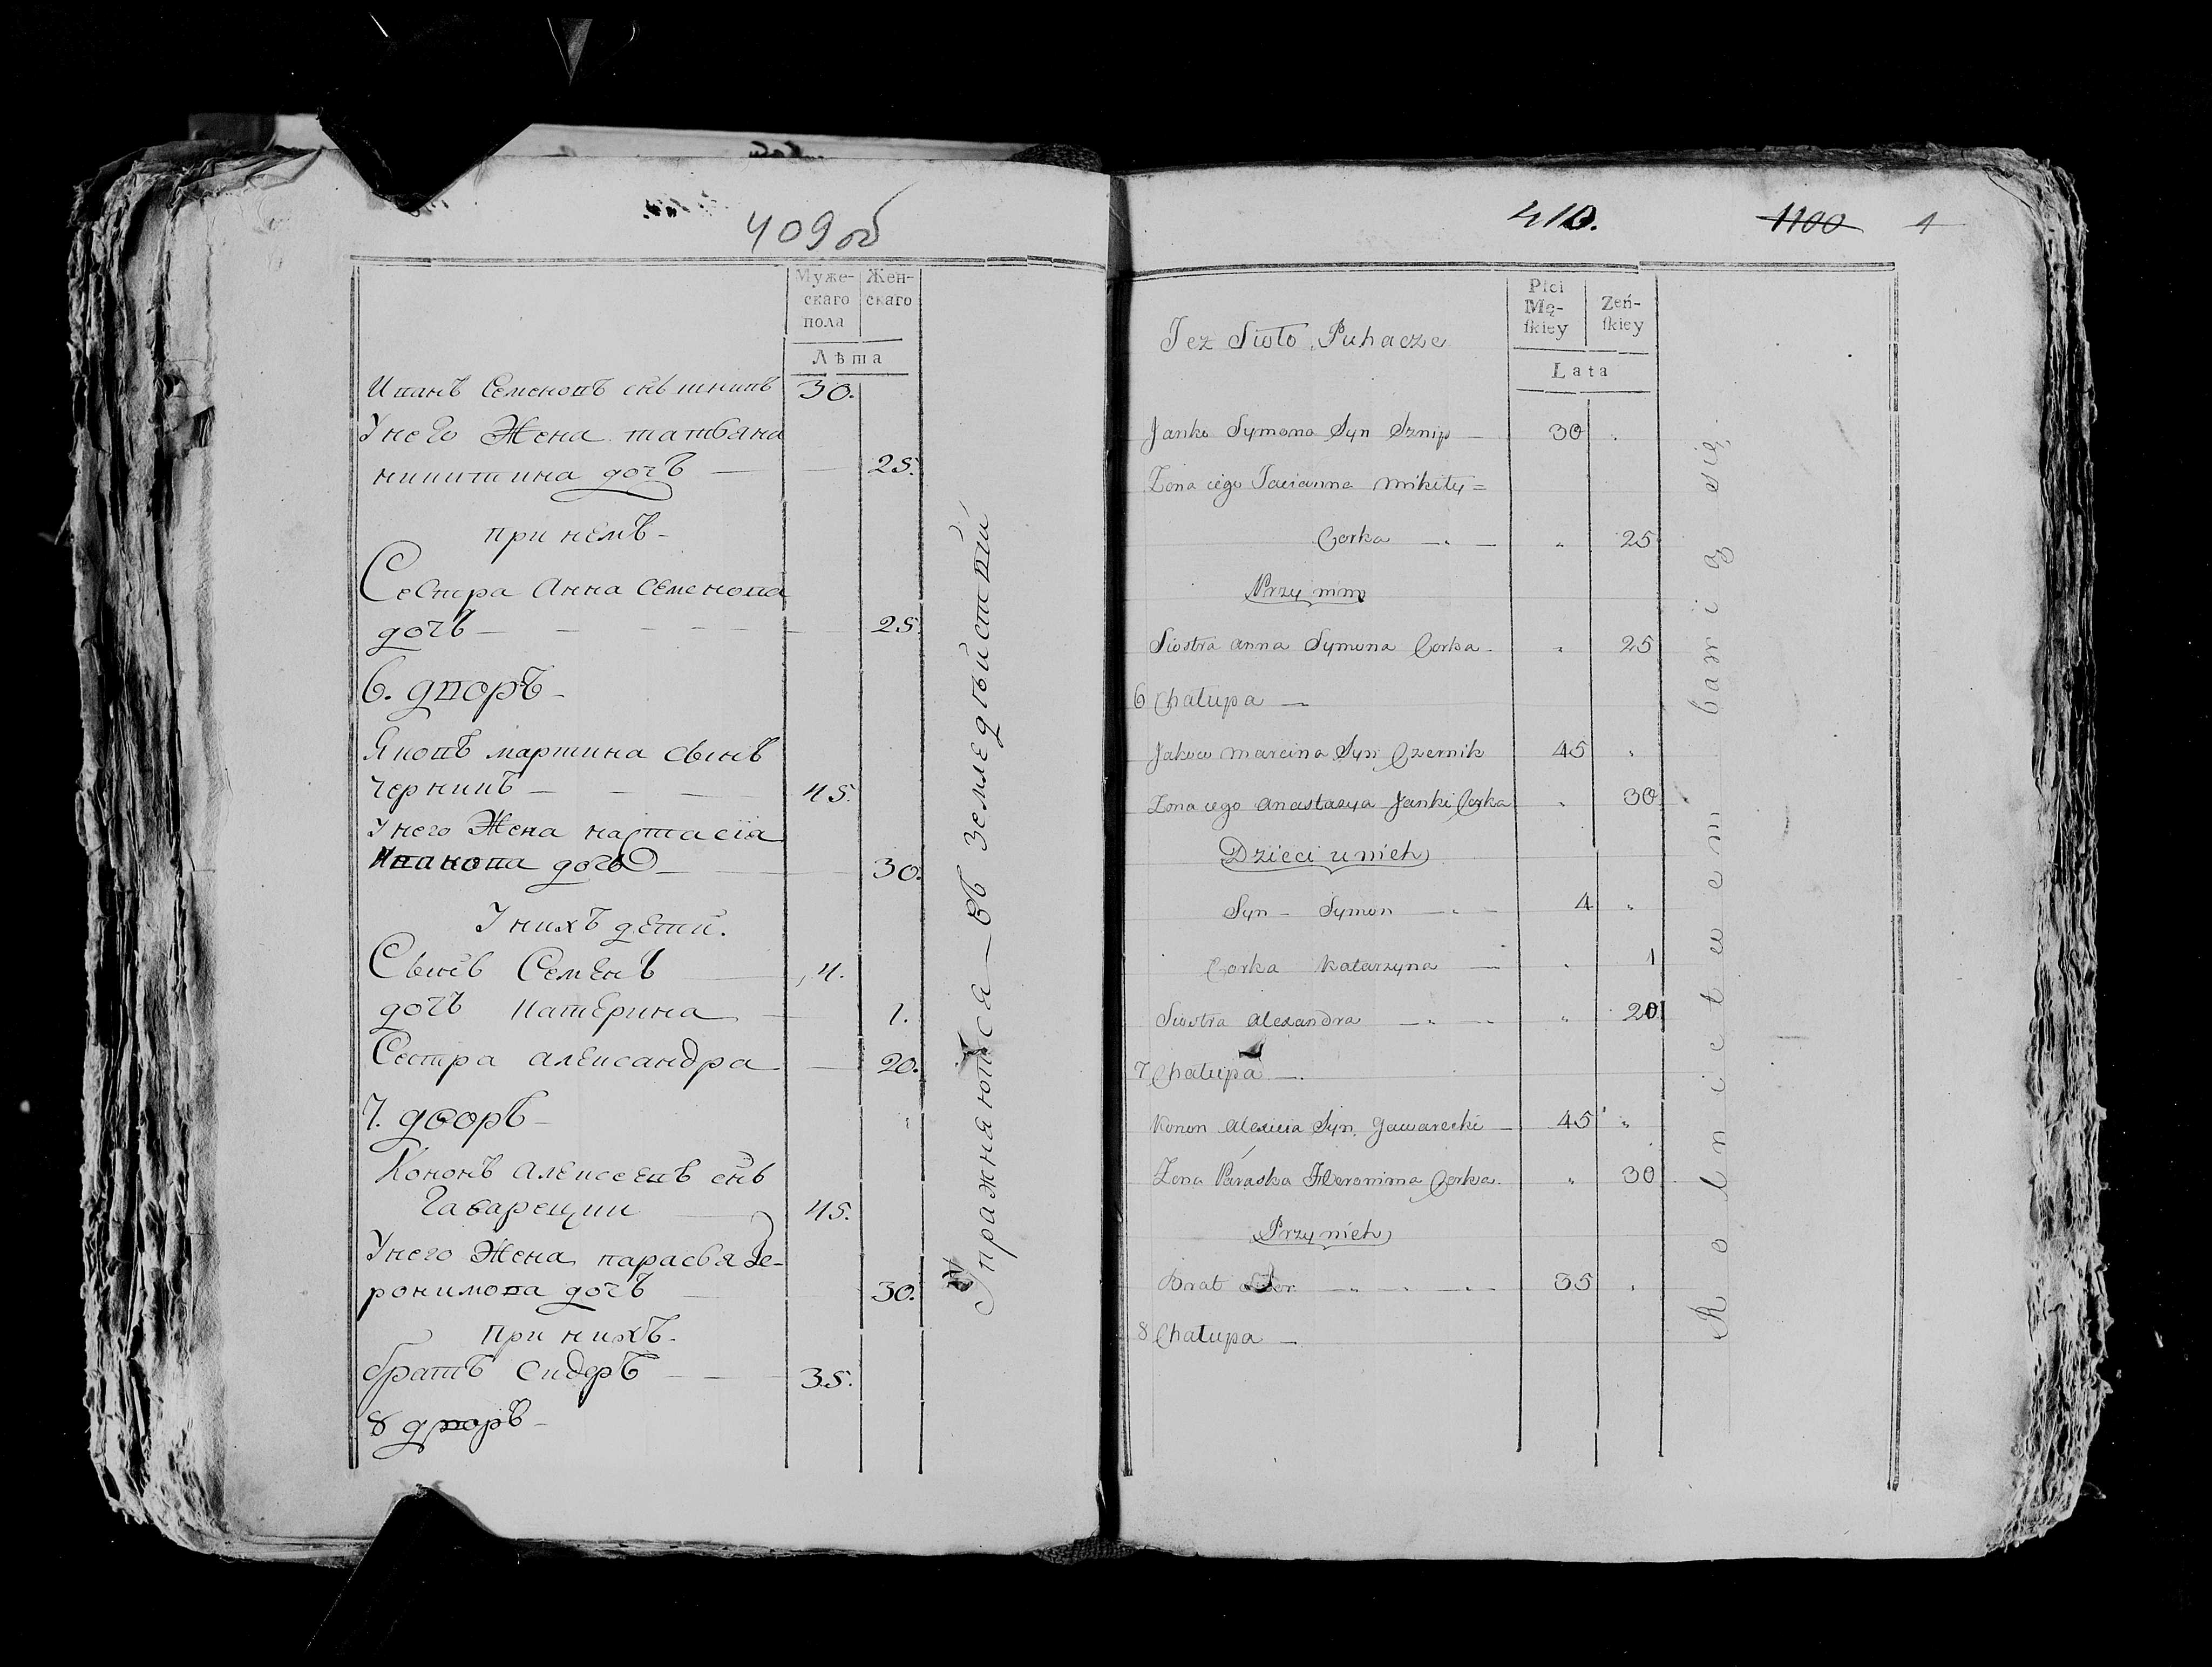 409об
Муже-
скаго
пола
Жен-
скаго
Лѣта
Иванъ Семеновъ снъ шнипъ 30.
У него Жена татьяна
никитина дочъ 25.
при немъ
Сестра Анна Семенова
дочъ 25.
6. дворъ
Яковъ мартина сынъ
Черникъ 45.
У него Жена настасїя
Иванова дочъ 30.
У нихъ дети.
Сынъ Семенъ 4.
дочъ Катерина 1.
Сестра александра 20.
7. дворъ
Кононъ алексеевъ снъ
Гаварецки 45.
У него Жена парасья Ге-
ронимова дочъ 30.
при нихъ.
братъ Сидоръ 35.
8 дворъ
Упражняются въ земледѣйствїй
410.
1100
1
Też Sioło Puhacze
Płci
Mę-
ſkiey
Zeń-
ſkiey
Lata
Janko Symona Syn Sznip 30 "
Zona iego Tacianna mikity=
Corka " 25
Przy nim
Siostra anna Symona Corka " 25
6 Chałupa
Jakow marcina Syn Czernik 45 "
Zona iego anastazya Janki Corka " 30
Dzieci u nich
Syn Symon 4 "
Corka Katarzyna " 1
Siostra Alexandra " 20
7 Chałupa
Konon Alexieia Syn Gawarecki 45 "
Zona Paraska Heronima Corka " 30
Przy nich
Brat Sidor 35 "
8 Chałupa
Rolnictwem bawią się.